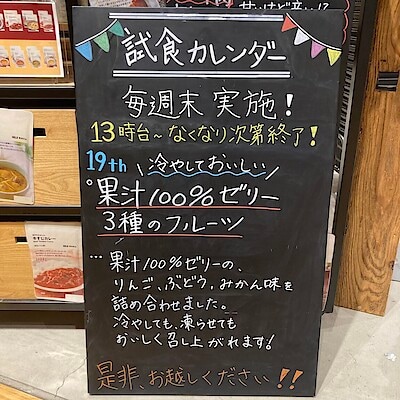 試食カレンダー
毎週末 実施!
13時台~なくなり次第終了!
19th 冷やしておいしい
果汁100%ゼリー
3種のフルーツ
…果汁100%ゼリーの、
りんご、ぶどう、みかん味を
詰め合わせました。
冷やしても、凍らせても
おいしく召し上がれます!
是非、お越しください!!